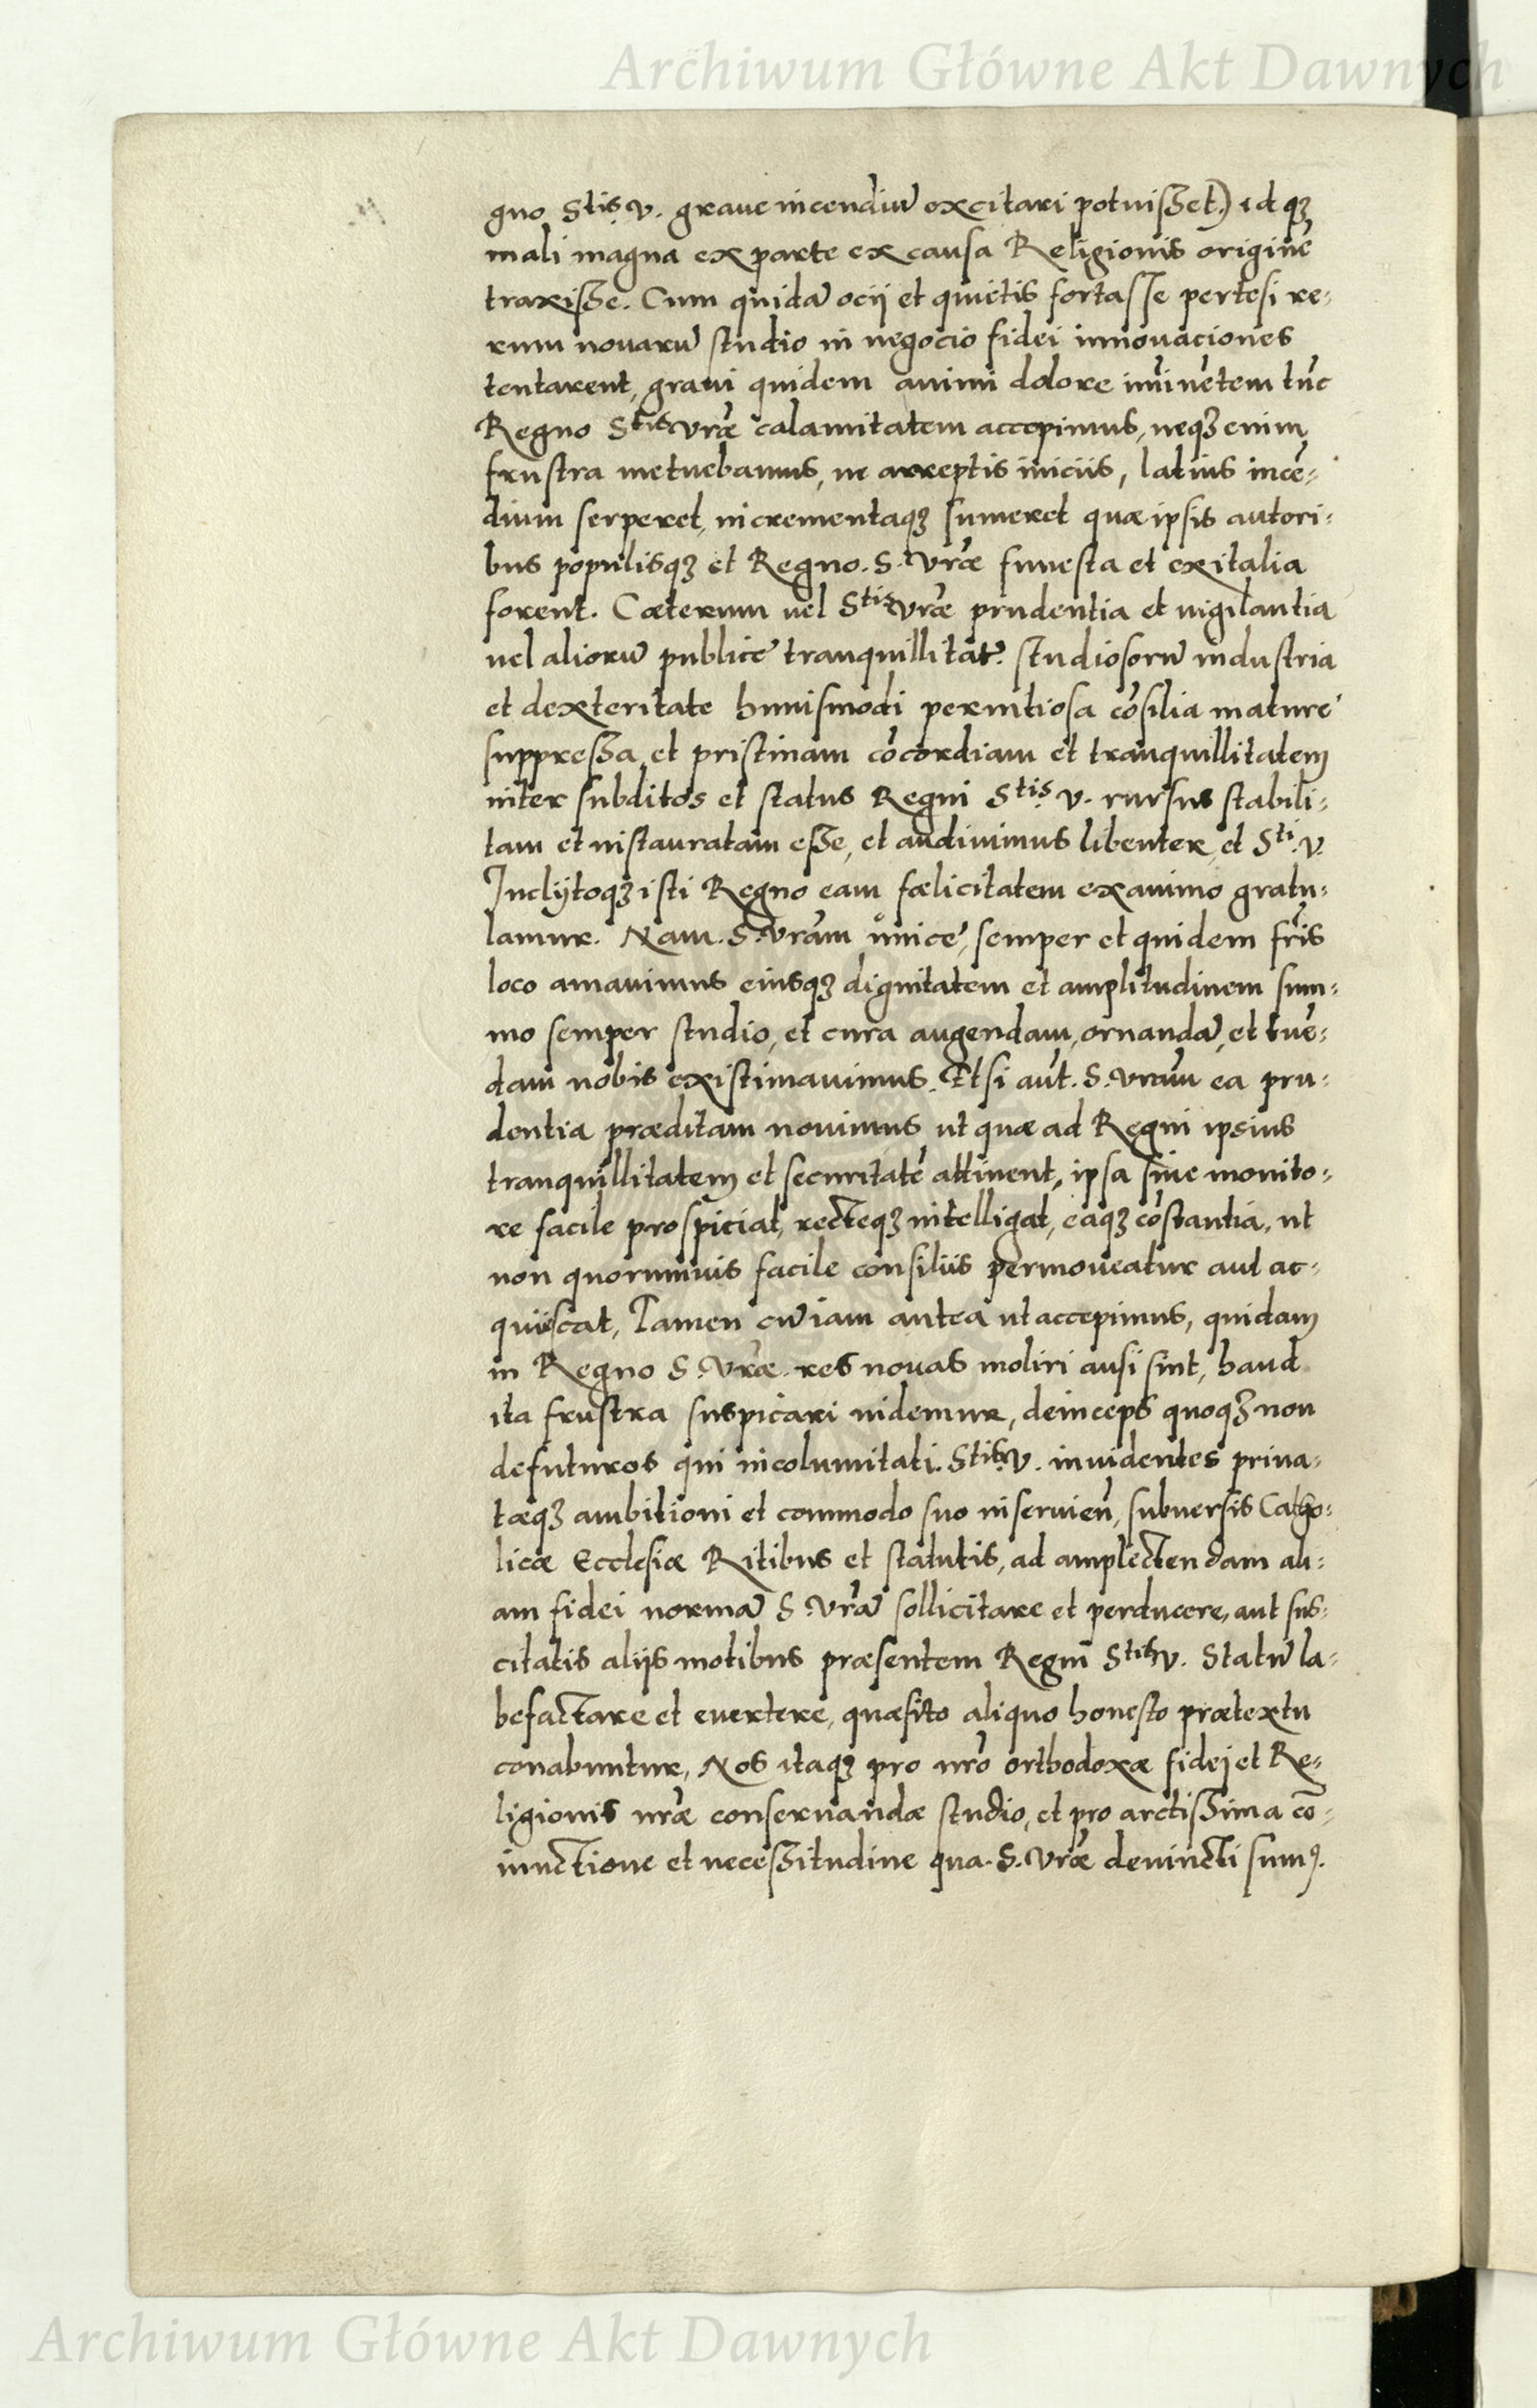 Archiwum Główne Akt Dawnych
gno Stis. V. graue incendiū excitari potuisset.) idqȝ
mali magna ex parte ex causa Religionis originē
traxisse. Cum quidā ocij et quietis fortasse pertesi re-
rum nouarū studio in negocio fidei innouaciones
tentarent, graui quidem animi dolore im̄inētem tūc
Regno Stis Vr̄æ calamitatem accepimus, neqȝ enim
frustra metuebamus, ne arreptis iniciis, latius incē-
dium serperet, incrementaqȝ sumeret quæ ipsis autori-
bus populisqȝ et Regno. S. Vr̄æ funesta et exitalia
forent. Cæterum uel Stis Vr̄æ prudentia et uigilantia
uel aliorū publicè tranquillitat. studiosorū industria
et dexteritate huiusmodi pernitiosa cōsilia maturè
suppressa, et pristinam cōcordiam et tranquillitatem
inter subditos et status Regni Stis. V. rursus stabili-
tam et instauratam esse, et audiuimus libenter, et Sti. V.
Inclijtoqȝ isti Regno eam fælicitatem ex animo gratu-
lamur. Nam. S. Vr̄am unicè, semper et quidem fr̄is
loco amauimus eiusqȝ dignitatem et amplitudinem sum-
mo semper studio, et cura augendam, ornandā, et tuē-
dam nobis existimauimus. Etsi aūt. S. Vr̄am ea pru-
dentia præditam nouimus ut quæ ad Regni ipsius
tranquillitatem et securitatē attinent, ipsa sine monito-
re facile prospiciat, recteqȝ intelligat, eaqȝ cōstantia, ut
non quorumuis facile consiliis permoueatur aut ac-
quiescat, Tamen cū iam antea ut accepimus, quidam
in Regno S. Vr̄æ. res nouas moliri ausi sint, haud
ita frustra suspicari uidemur, deinceps quoqȝ non
defuturos qui incolumitati. Stis V. inuidentes priua-
tæqȝ ambitioni et commodo suo inseruien̄, subuersis Catho-
licæ Ecclesiæ Ritibus et statutis, ad amplectendam ali-
am fidei normā S. Vr̄ā sollicitare et perducere, aut sus-
citatis aliis motibus præsentem Regni Stis V. Statū la-
befactare et euertere, quæsito aliquo honesto prætextu
conabuntur, Nos itaqȝ pro nr̄o orthodoxæ fidei et Re-
ligionis nr̄æ conseruandæ studio, et pro arctissima cō-
iunctione et necessitudine qua. S. Vr̄æ deuincti sumꝰ.
Archiwum Główne Akt Dawnych